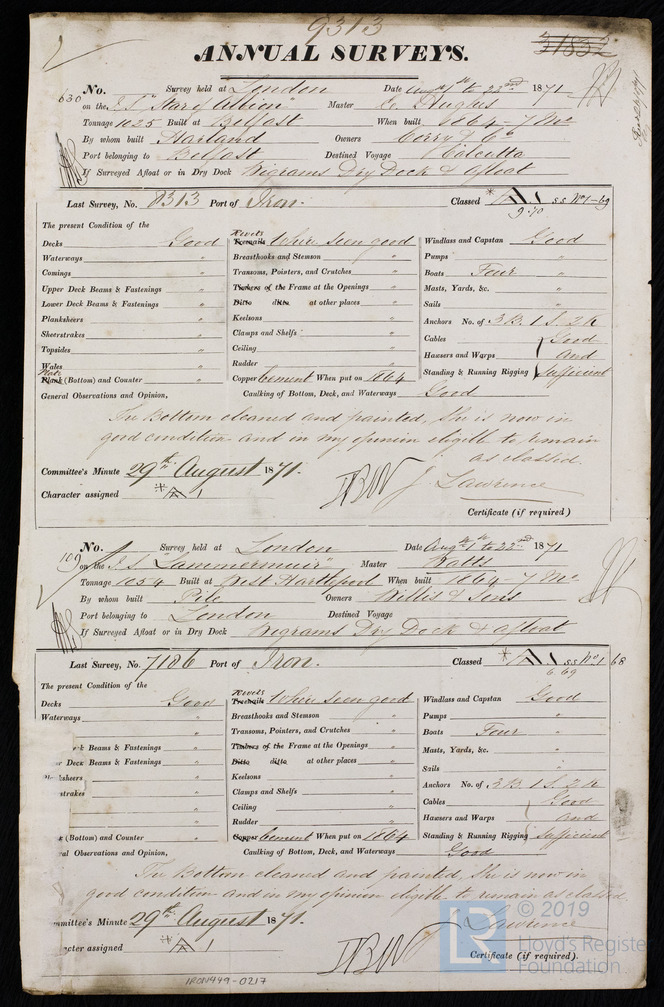 9313
ANNUAL SURVEYS. 3183
630 No. Survey held at London Date Augt 1st to 22nd 1871
on the I.S. "Star of Albion" Master
Tonnage 1025 Built at Belfast When built 1864-7 Mo
By whom built Harland Owners Corry & Co
Port belonging to Belfast Destined Voyage Calcutta
If Surveyed Afloat or in Dry Dock Wigrams Dry Dock & afloat
Last Survey, No. 8313 Port of Iron. Classed *A 1 s.s No 1-69
9.70
The present Condition of the
Decks Good
Waterways "
Comings "
Upper Deck Beams & Fastenings "
Lower Deck Beams & Fastenings "
Planksheers "
Sheerstrakes "
Topsides "
Wales "
Plate
Plank (Bottom) and Counter "
Rivets
Treenails Where seen good
Breasthooks and Stemson "
Transoms, Pointers, and Crutches "
Timbers of the Frame at the Openings "
Ditto ditto at other places "
Keelsons "
Clamps and Shelfs "
Ceiling "
Rudder "
Copper Cement When put on 1864
Windlass and Capstan Good
Pumps "
Boats Four "
Masts, Yards, &c. "
Sails "
Anchors No. of 3 B. 1 S. 2 K
Cables Good
Hawsers and Warps and
Standing & Running Rigging Sufficient
General Observations and Opinion, Caulking of Bottom, Deck, and Waterways Good
The Bottom cleaned and painted, She is now in
good condition and in my opinion eligible to remain
as classed.
Committee's Minute 29th August 1871.
J. Lawrence
Character assigned *A 1
Certificate (if required)
109 No. Survey held at London Date Augt 1st to 22nd 1871
on the I.S. "Lammermuir" Master Watts
Tonnage 1054 Built at West Hartlepool When built 1864-7 Mo
By whom built Pile Owners Willis & Sons
Port belonging to London Destined Voyage
If Surveyed Afloat or in Dry Dock Wigrams Dry Dock & afloat
Last Survey, No. 7186 Port of Iron. Classed *A 1 s.s No 1 68
6.69
The present Condition of the
Decks Good
Waterways "
k Beams & Fastenings "
r Deck Beams & Fastenings "
ksheers "
strakes "
"
"
k (Bottom) and Counter "
Rivets
Treenails Where seen good
Breasthooks and Stemson "
Transoms, Pointers, and Crutches "
Timbers of the Frame at the Openings "
Ditto ditto at other places "
Keelsons "
Clamps and Shelfs "
Ceiling "
Rudder "
Copper Cement When put on 1864
Windlass and Capstan Good
Pumps "
Boats Four "
Masts, Yards, &c. "
Sails "
Anchors No. of 3 B 1 S. 2 K
Cables Good
Hawsers and Warps and
Standing & Running Rigging Sufficient
ral Observations and Opinion, Caulking of Bottom, Deck, and Waterways Good
The Bottom cleaned and painted, She is now in
good condition and in my opinion eligible to remain as classed.
mmittee's Minute 29th August 1871.
J Lawrence
acter assigned *A 1
Certificate (if required).
IRON449-0217
LR © 2019
Lloyd's Register
Foundation